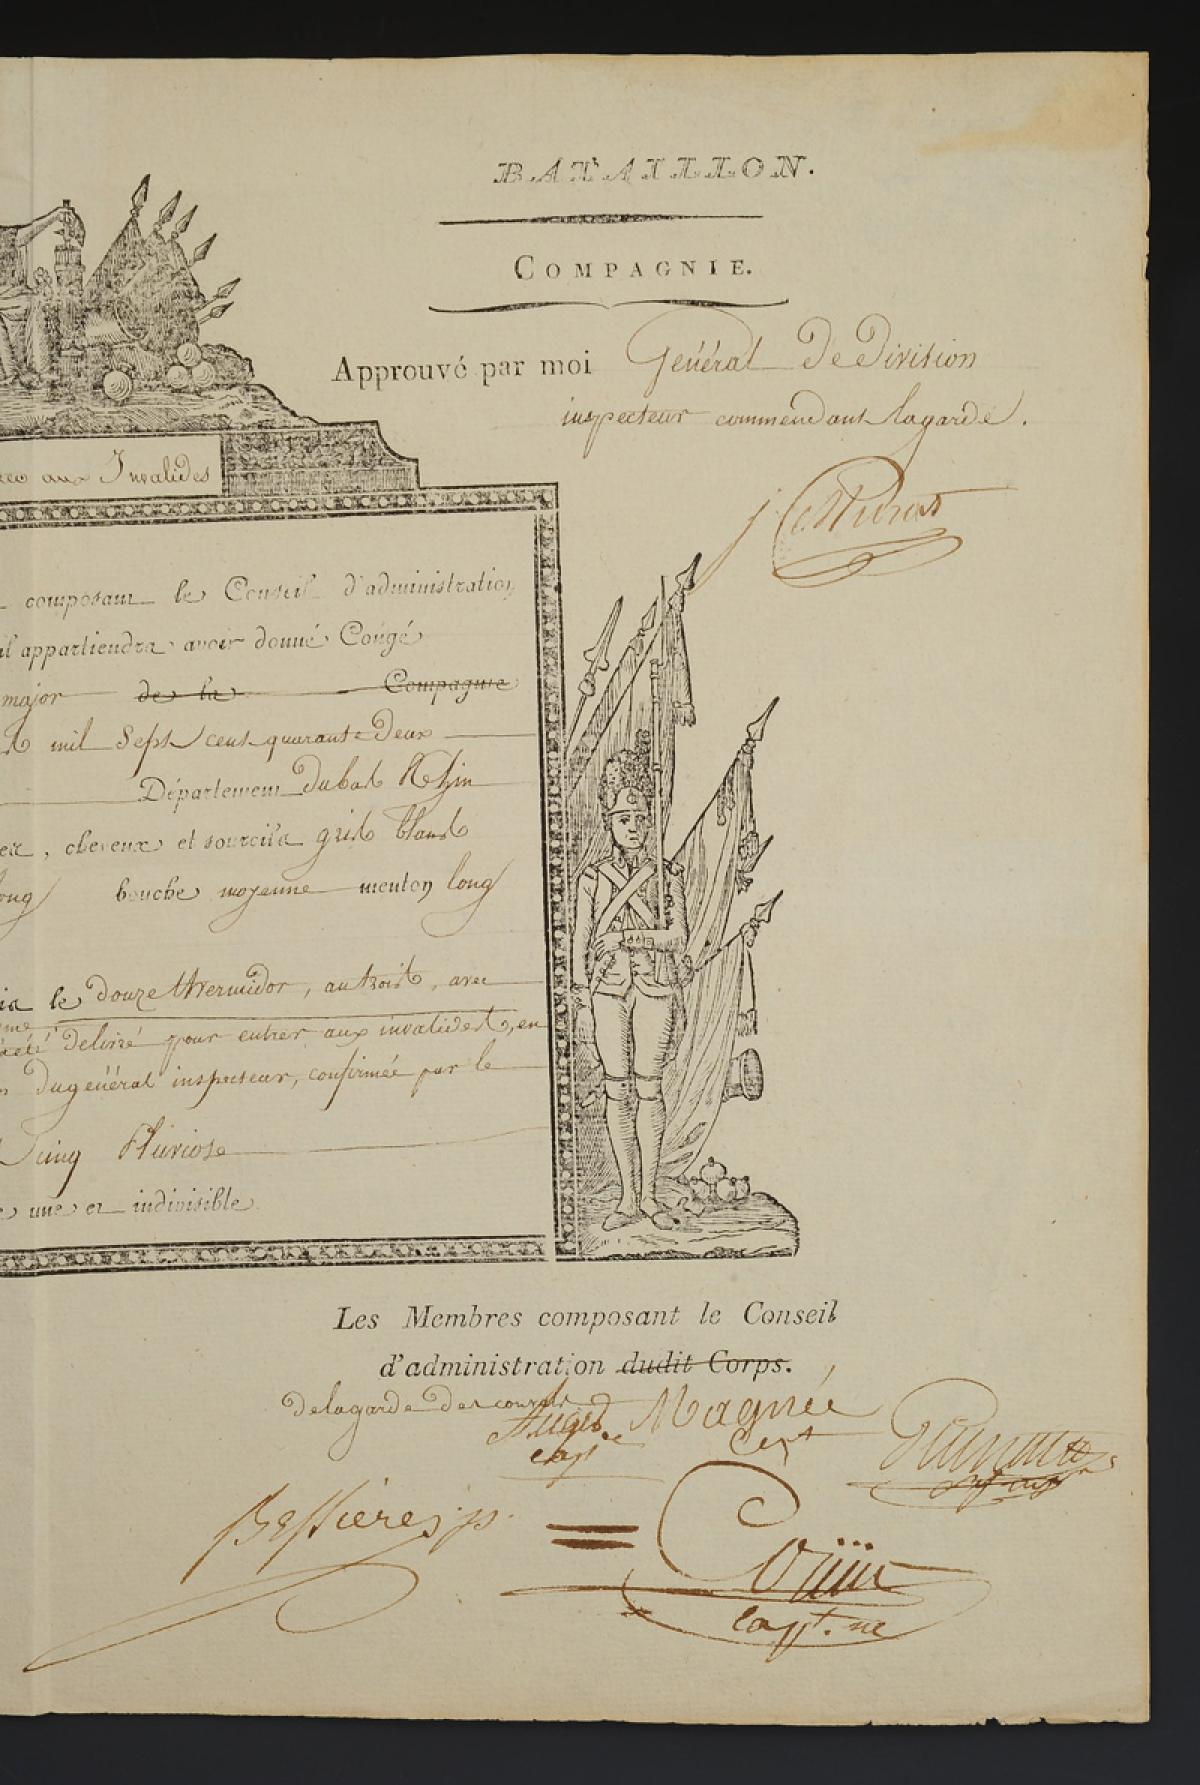 BATAILLON.
COMPAGNIE.
Approuvé par moi Genéral De Division
inspecteur commendant lagarde.
aux Invalides
composant le Conseil d'administration
il appartiendra avoir donné Congé
major de la Compagnie
mil Sept cent quarante Deux
Département Dubas Rhin
cheveux et sourcils gris blans
long bouche moyenne menton long
le douze thermidor, an trois, avec
delivré pour entrer aux invalides, en
Dugénéral inspecteur, confirmée par le
Cinq Pluviose
une et indivisible
Les Membres composant le Conseil
d'administration dudit Corps.
Delagarde Des consuls
Auger Magnée
cap.ne
Bessières jp.
Capt.ne